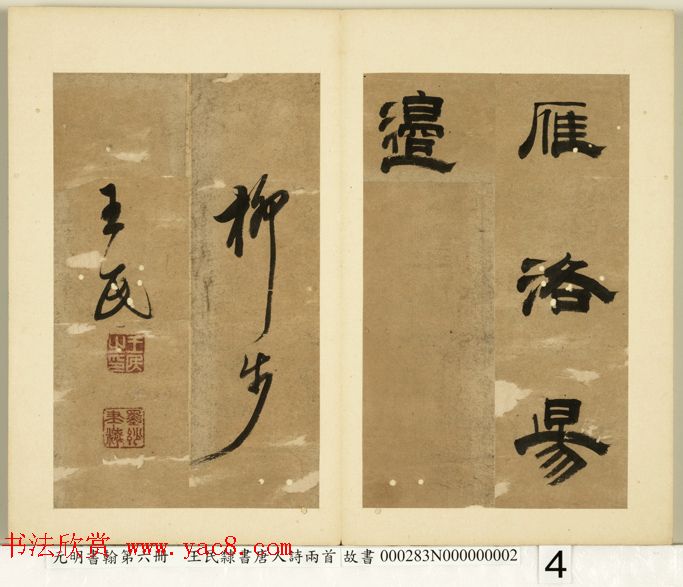 雁洛昜
邊
柳步
王民
王民之印
书法欣赏 www.yac8.com
元明書翰第六冊 王民隸書唐人詩兩首 故書 000283N000000002
4